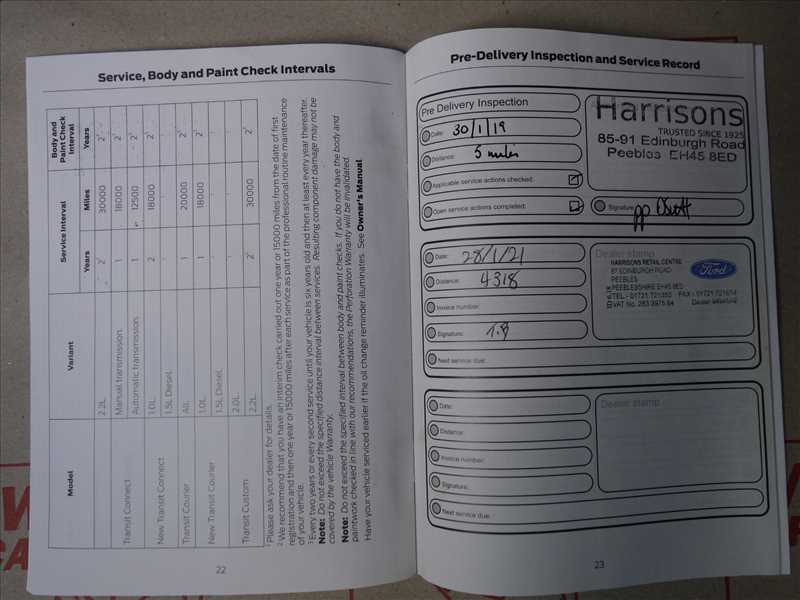 Service, Body and Paint Check Intervals
Model Variant Service Interval Body and Paint Check Interval
Years Miles Years
2.2L 30000
Transit Connect Manual transmission 1 18000
Automatic transmission 1 12500
New Transit Connect 1.0L 2 18000
1.5L Diesel
Transit Courier All 1 20000
New Transit Courier 1.0L 1 18000
1.5L Diesel
2.0L
Transit Custom 2.2L 30000
1 Please ask your dealer for details.
2 We recommend that you have an interim check carried out one year or 15000 miles from the date of first
registration and then one year or 15000 miles after each service as part of the professional routine maintenance
of your vehicle.
3 Every two years or every second service until your vehicle is six years old and then at least every year thereafter.
Note: Do not exceed the specified distance interval between services. Resulting component damage may not be
covered by the vehicle Warranty.
Note: Do not exceed the specified interval between body and paint checks. If you do not have the body and
paintwork checked in line with our recommendations, the Perforation Warranty will be invalidated.
Have your vehicle serviced earlier if the oil change reminder illuminates. See Owner's Manual.
22
Pre-Delivery Inspection and Service Record
Pre Delivery Inspection
Date: 30/1/19
Distance: 5 miles
Applicable service actions checked:
Open service actions completed:
Harrisons
TRUSTED SINCE 1925
85-91 Edinburgh Road
Peebles EH45 8ED
Signature:
Date: 28/1/21
Distance: 4318
Invoice number:
Signature:
Next service due:
Dealer stamp
HARRISONS RETAIL CENTRE
87 EDINBURGH ROAD
PEEBLES
PEEBLESSHIRE EH45 8ED
TEL:- 01721 721350 FAX:- 01721 721614
VAT No. 263 3975 64
Ford
Date:
Distance:
Invoice number:
Signature:
Next service due:
Dealer stamp
23